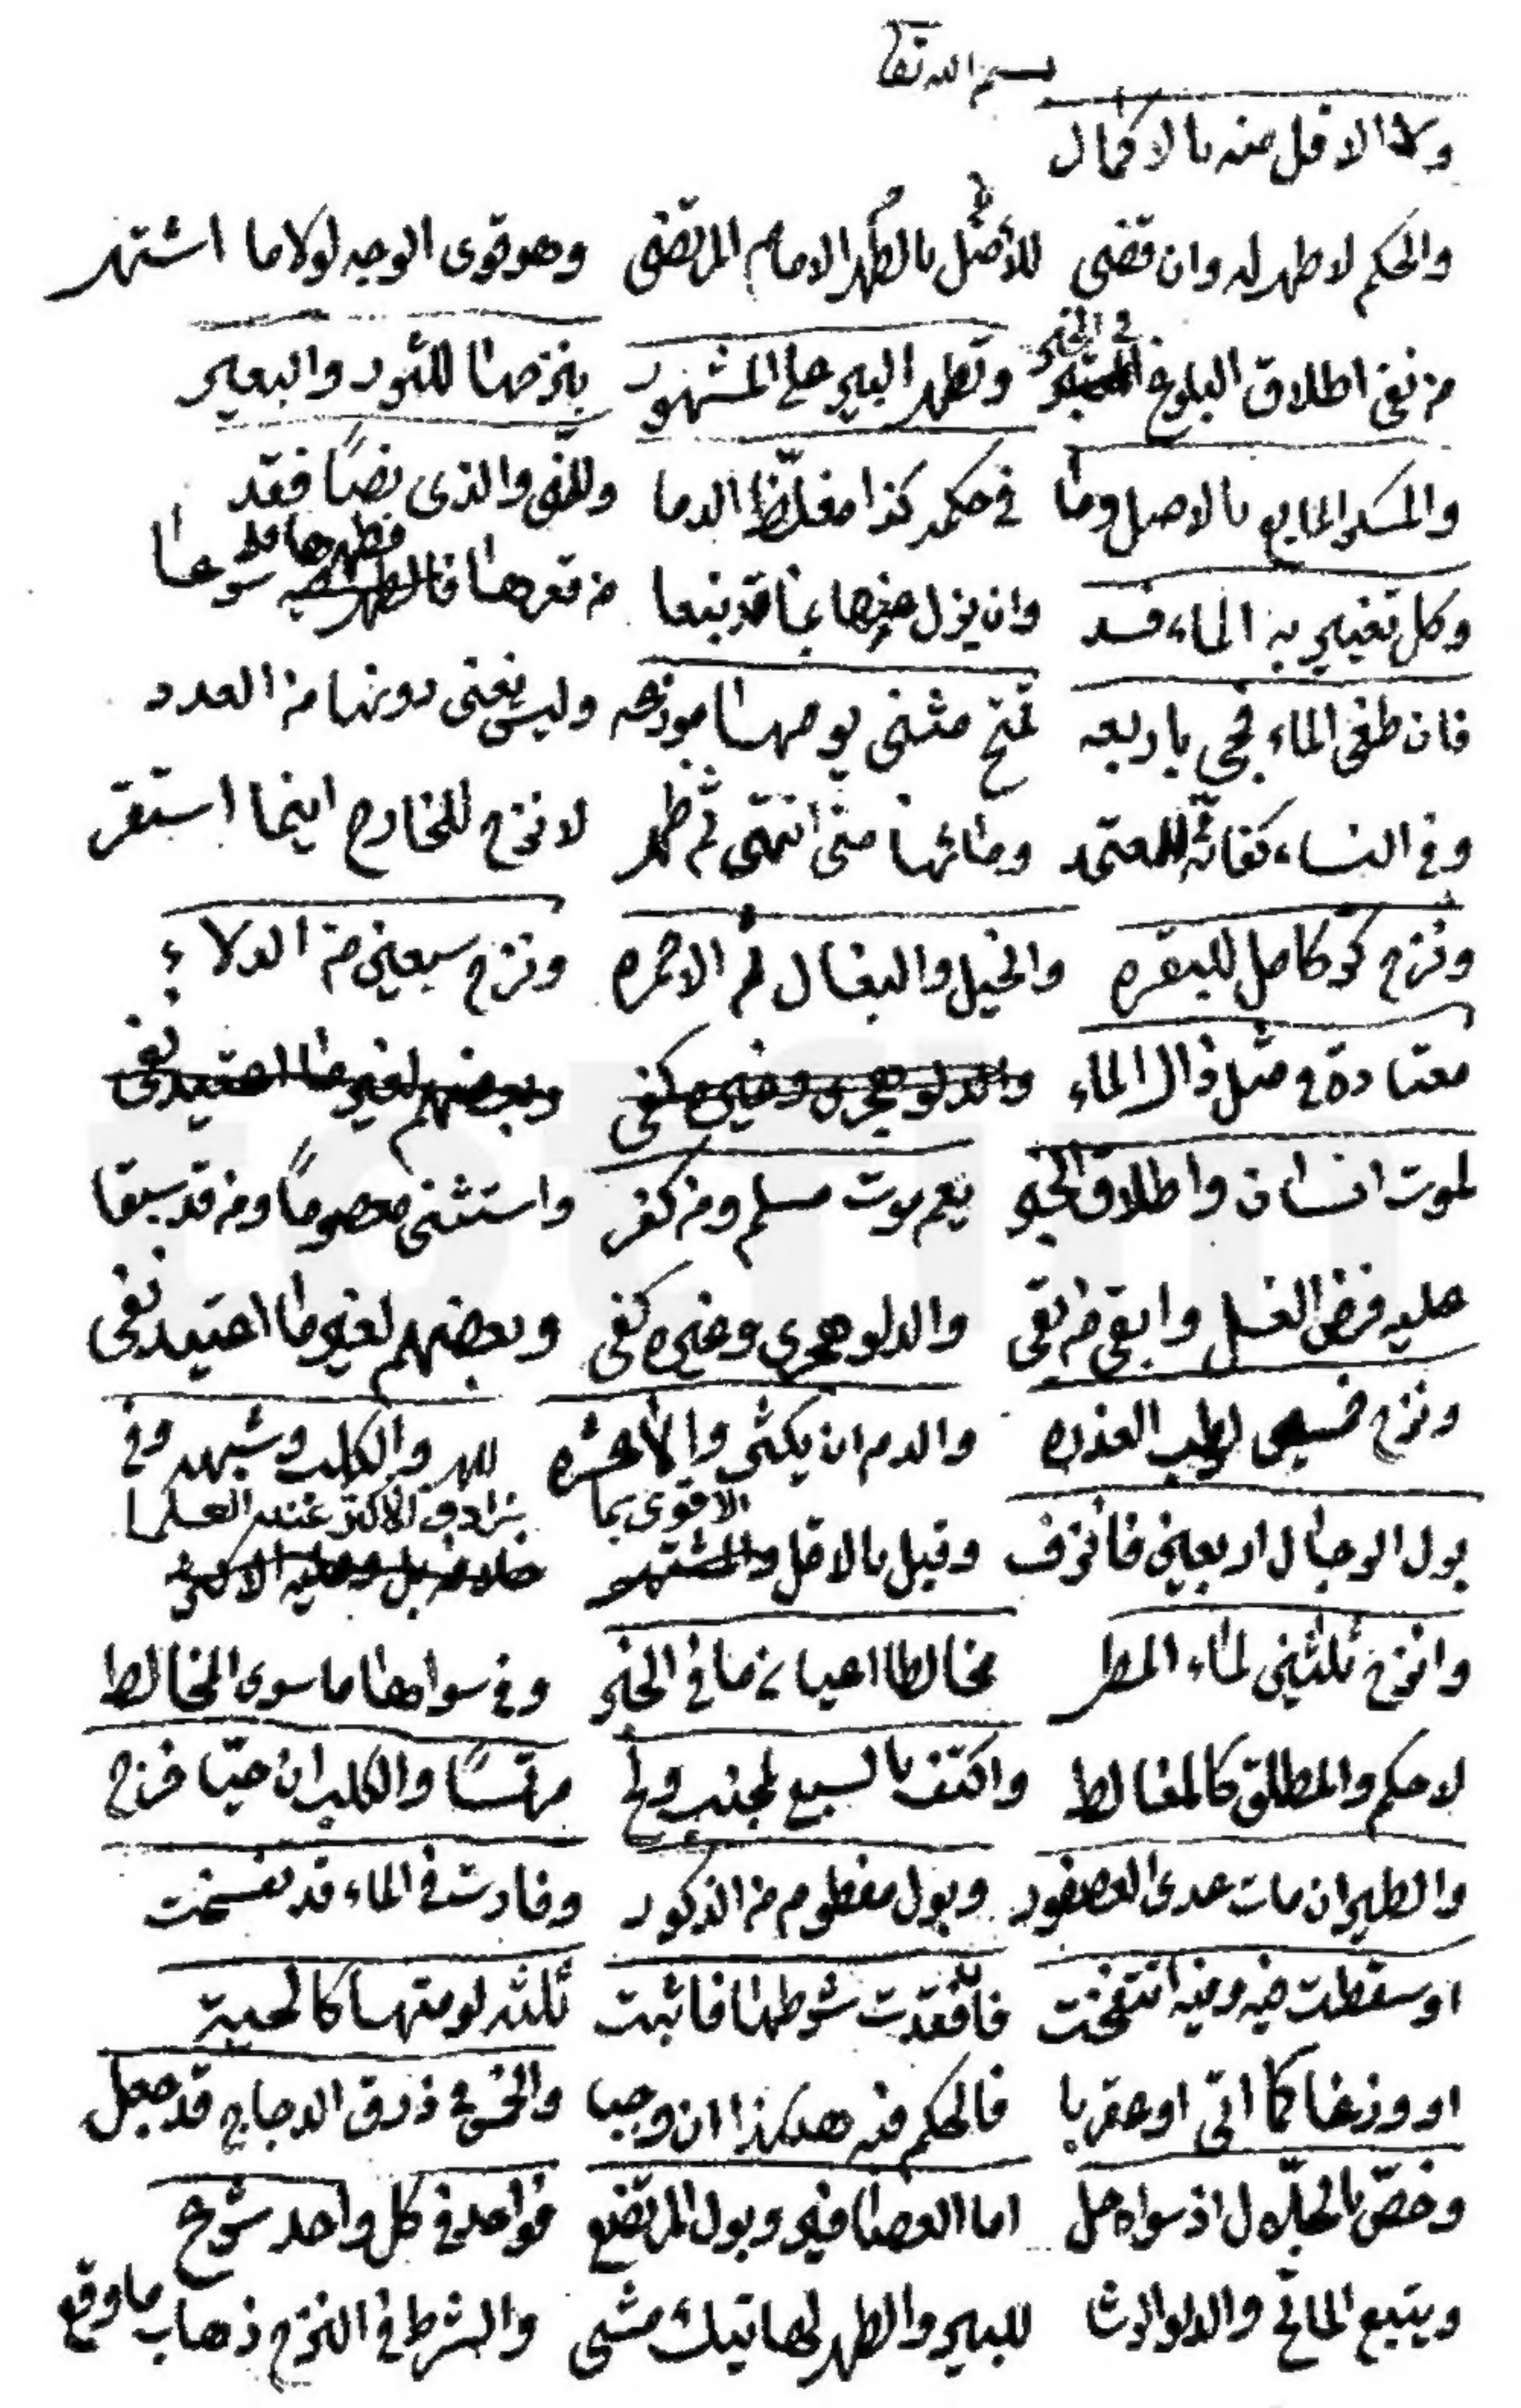 بسم الله تعا
وكذا الاقل منه بالاكمال
والحكم لا طهر له وان قضى للأصل بالطهر الامام المرتضى وهو قوى الوجه لولا ما اشتهر
من نفى اطلاق البلوغ في الخبر وتطهر البير على المشهور بنزحها للثور والبعير
والمسكر المايع بالاصل وما في حكمه كذا مغلّظ الدما وللمنى والذى نصًا فقد
فطهرها معا
وكل تغيير به الماء فسد وان يزل بما قد نبعا من قعرها شرعا
فان طغى الماء فجئ باربعه تمتح مثنى يومها موزعه وليس يغنى دونها من العدد
وفي النساء كفائة للمعتمد ومائها متى انتهى ثم طهر لا نزح للخارج اينما استقر
ونزح كر كامل للبقره والخيل والبغال ثم الاحمره ونزح سبعين من الدلاء
معتادة في مثل ذاك الماء والدلو هجرى وغيره كفى وبعضهم لغير ما اعتيد نفى
لموت انسان واطلاق الخبر يعم موت مسلم ومن كفر واستثنى معصومًا ومن قد سبقا
عليه فرض الغسل وابقى من بقى والدلو هجرى وغيره كفى وبعضهم لغير ما اعتيد نفى
ونزح خمسين لرطب العذره والدم ان يكثر والا عشره للهر والكلب وشبهه وفي
الاقوى بما يرادف الاكثر عند العلما
بول الرجال اربعين فانزف وقيل بالاقل والمشتهر خلافه بل وعليه الاكثر
وانزح ثلثين لماء المطر مخالطا اعيان ما في الخبر وفي سواها ما سوى المخالط
لا حكم والمطلق كالمغالط واكتف بالسبع لجنب ولج مرتمسًا والكلب ان حيّا خرج
والطير ان مات عدى العصفور وبول مفطوم من الذكور وفارة في الماء قد تفسخت
او سقطت فيه وفيه انتفخت فافقدت شرطها فاثبت ثلثه لموتها كالحية
او وزغا كما اتى او عقربا فالحكم فيه هكذا ان وجبا والخمس في ذرق الدجاج قد جعل
وخصّ بالجلّال اذ سواه حل اما العصافير وبول المرتضع فواحد في كل واحد شرع
ويتبع الماتح والدلو الرشا للبير والطهر لهاتيك مشى والشرط في النزح ذهاب ما وقع